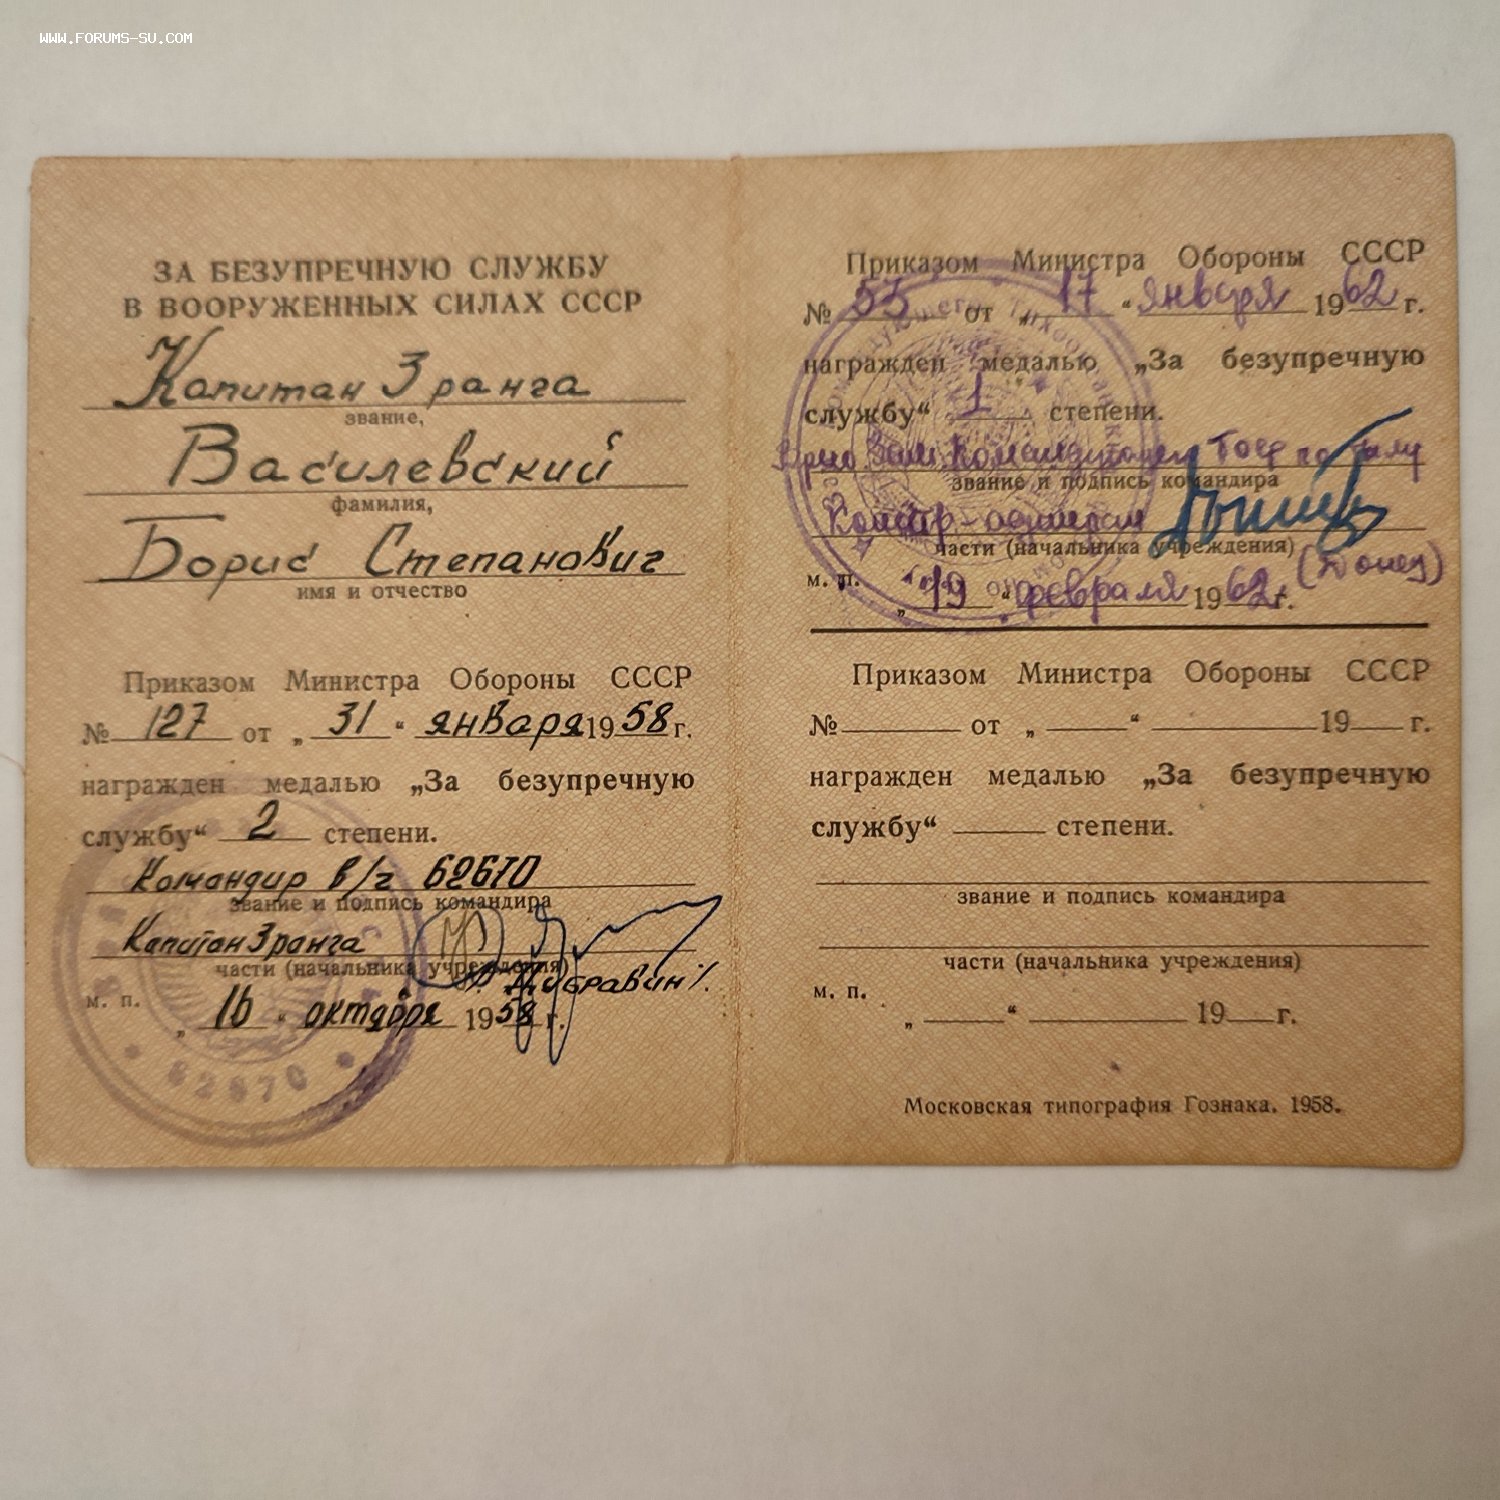 WWW.FORUMS-SU.COM
ЗА БЕЗУПРЕЧНУЮ СЛУЖБУ
В ВООРУЖЕННЫХ СИЛАХ СССР
Капитан 3 ранга
звание,
Василевский
фамилия,
Борис Степанович
имя и отчество
Приказом Министра Обороны СССР
№ 127 от „ 31 “ января 1958 г.
награжден медалью „За безупречную
службу“ 2 степени.
Командир в/ч 62670
звание и подпись командира
Капитан 3 ранга
части (начальника учреждения)
/Дубравин/.
м. п.
„ 16 “ октября 1958 г.
62670
Приказом Министра Обороны СССР
№ 53 от „ 17 “ января 1962 г.
награжден медалью „За безупречную
службу“ 1 степени.
Врио Зам. Командующего ТОФ по тылу
звание и подпись командира
Контр-адмирал
части (начальника учреждения)
(Донец)
м. п.
„ 19 “ февраля 1962 г.
Приказом Министра Обороны СССР
№ от „ “ 19 г.
награжден медалью „За безупречную
службу“ степени.
звание и подпись командира
части (начальника учреждения)
м. п.
„ “ 19 г.
Московская типография Гознака. 1958.